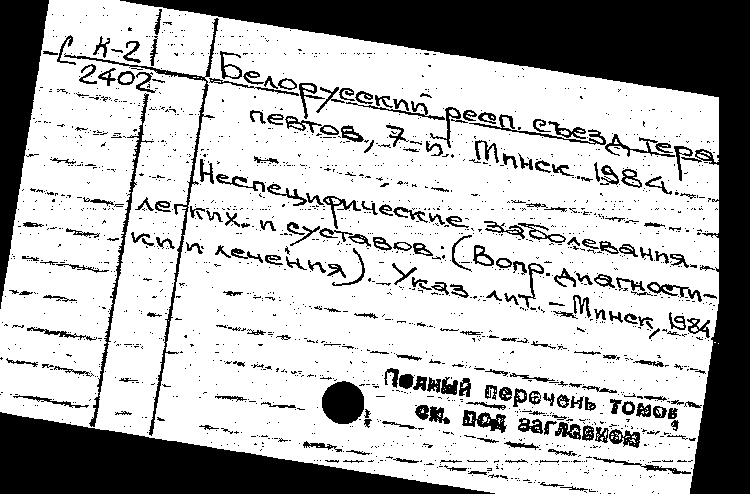 К-2
2402
Белорусский респ. съезд тера-
певтов, 7-й. Минск. 1984.
Неспецифические заболевания
легких и суставов: (Вопр. диагности-
ки и лечения). Указ. лит. - Минск, 1984
Полный перечень томов
см. под заглавием